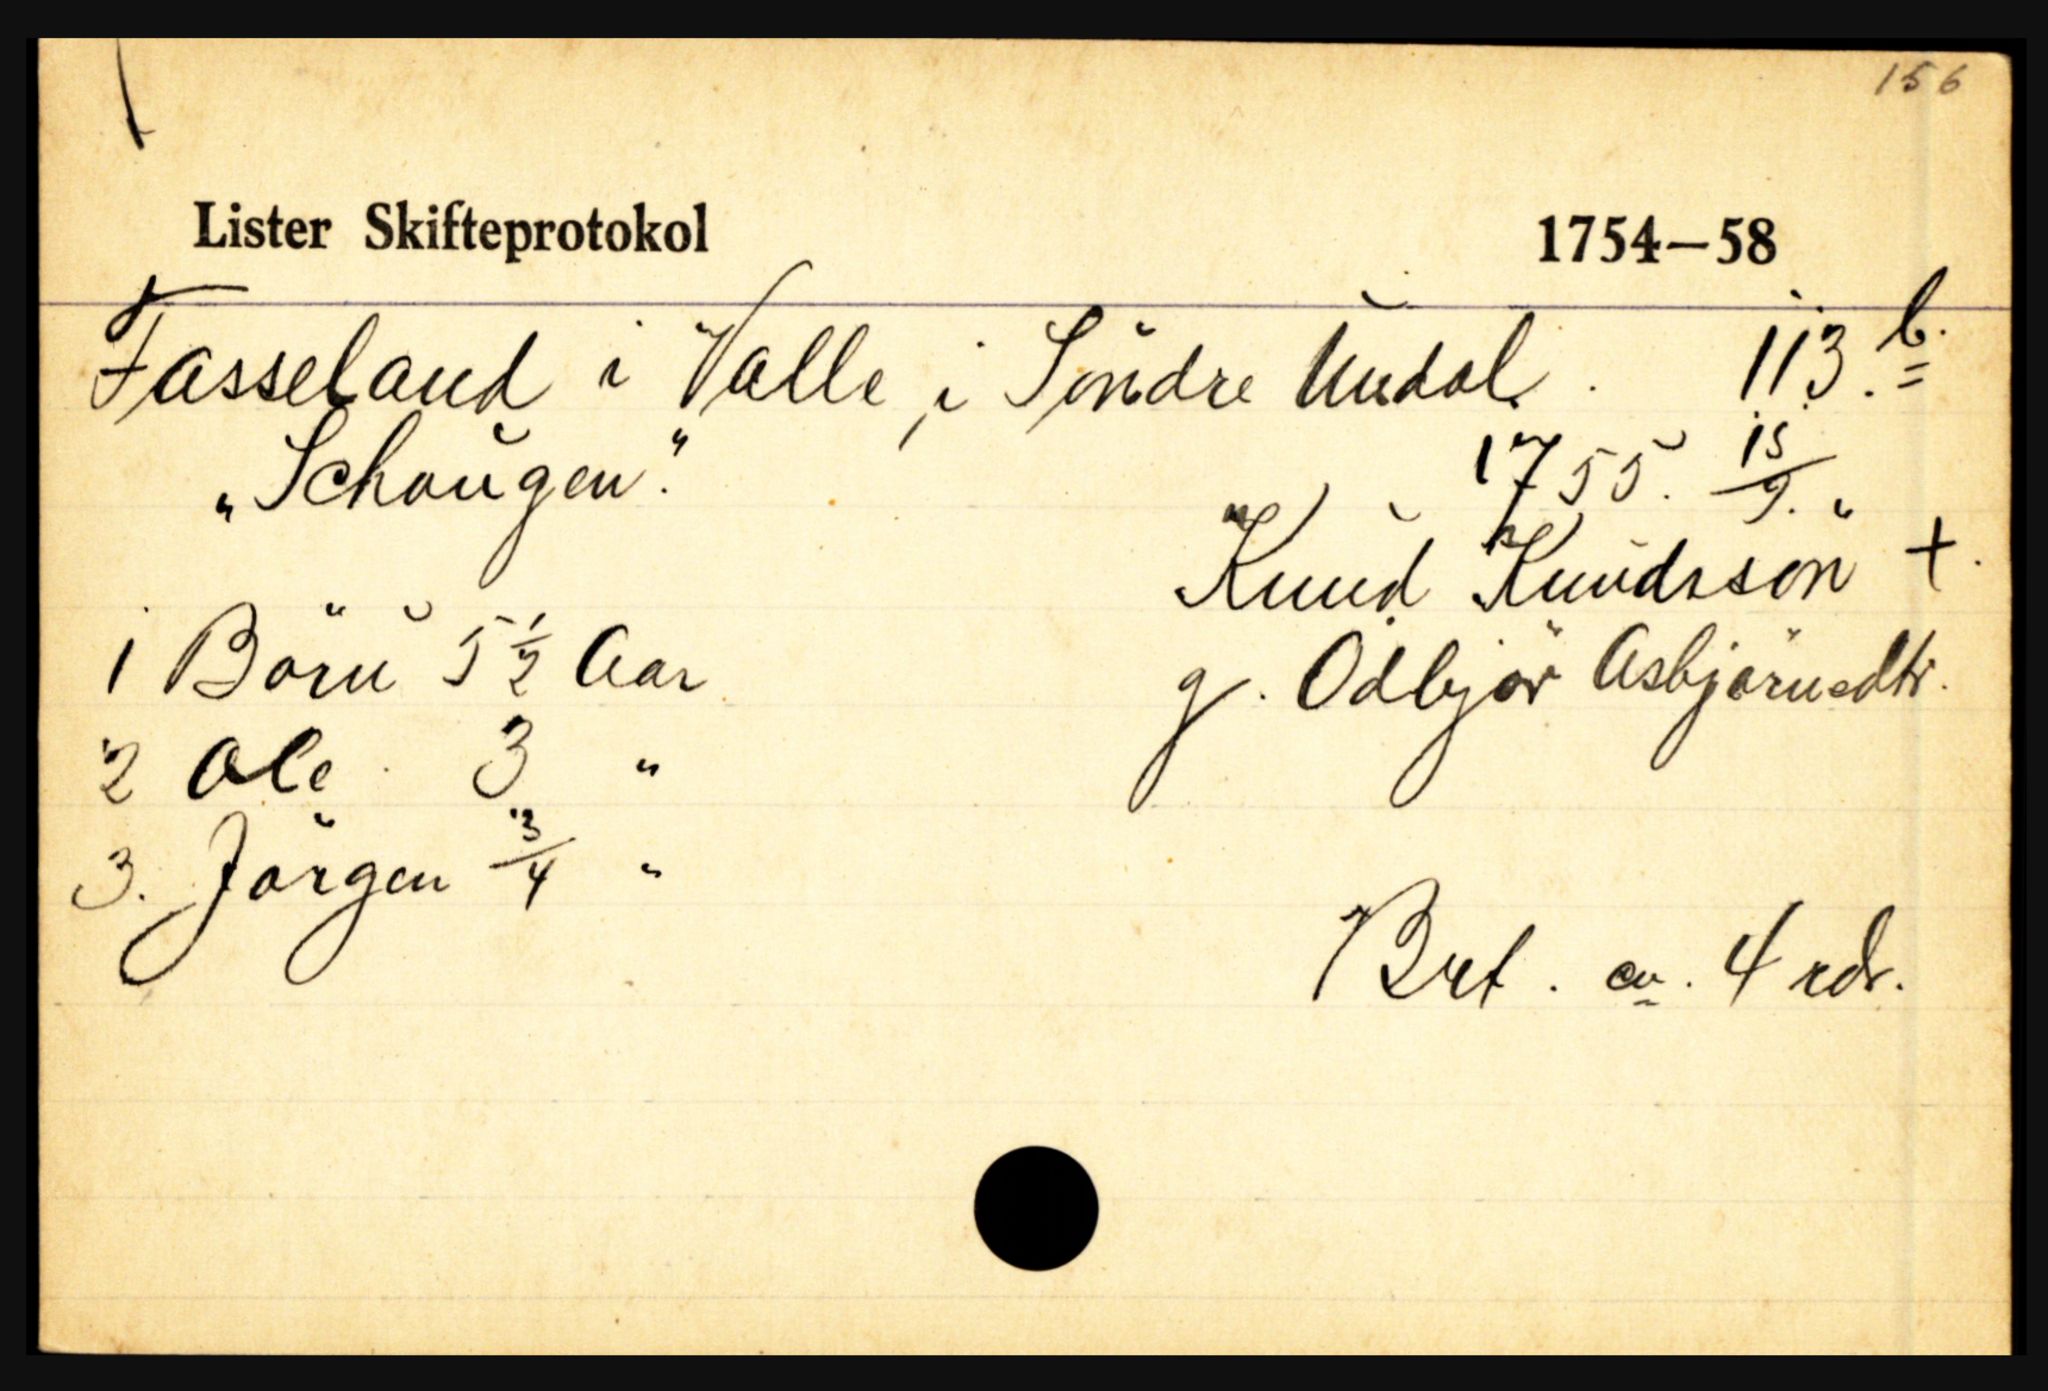 156
Lister Skifteprotokol 1754—58
Fasseland i Valle, i Söndre Undal. 113.b.
"Schougen." 1755. 15/9.
Knud Knudssön +.
1 Börü 5 1/2 Aar g. Odbjör Asbjörnsdtr.
2 Ole. 3 "
3. Jörgen 3/4 "
Brt. ca. 4 rdr.